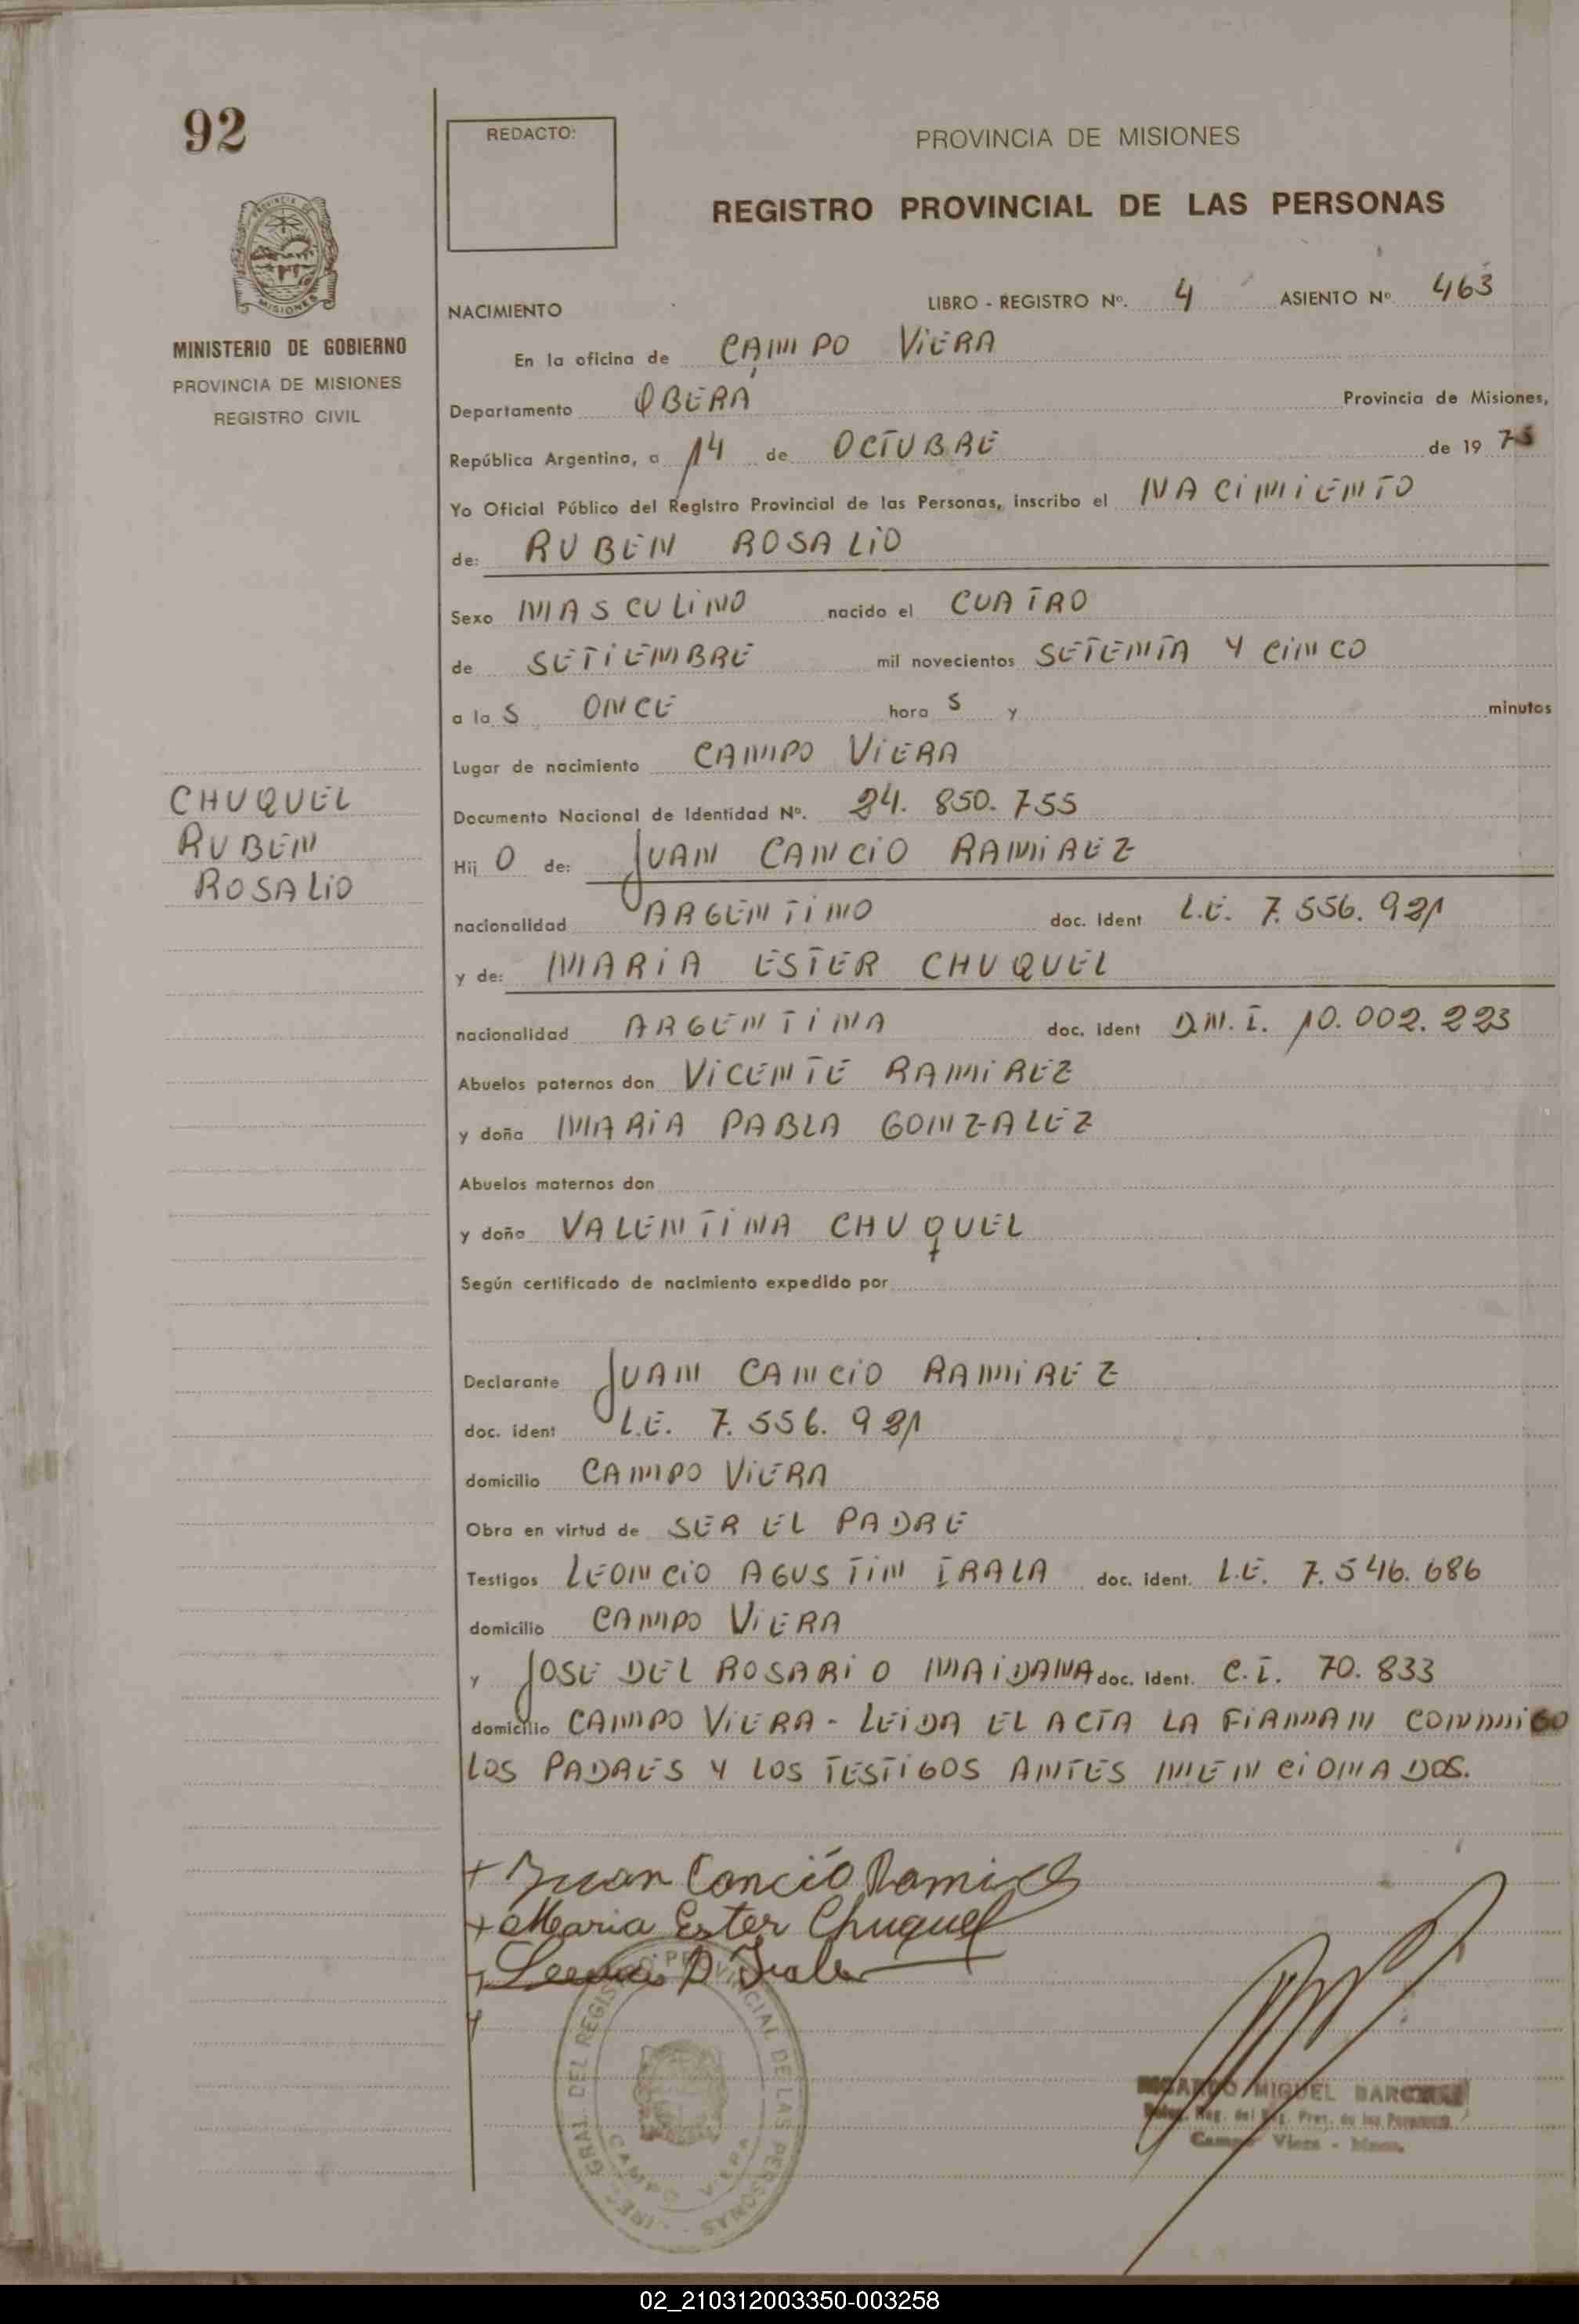 92
REDACTO:
PROVINCIA DE MISIONES
REGISTRO PROVINCIAL DE LAS PERSONAS
MISIONES
MINISTERIO DE GOBIERNO
PROVINCIA DE MISIONES
REGISTRO CIVIL
NACIMIENTO LIBRO - REGISTRO Nº. 4 ASIENTO Nº 463
En la oficina de CAMPO VIERA
Departamento OBERÁ Provincia de Misiones,
República Argentina, a 14 de OCTUBRE de 19 75
Yo Oficial Público del Registro Provincial de las Personas, inscribo el NACIMIENTO
de: RUBEN ROSALIO
Sexo MASCULINO nacido el CUATRO
de SETIEMBRE mil novecientos SETENTA Y CINCO
a la S ONCE hora S y minutos
Lugar de nacimiento CAMPO VIERA
CHUQUEL
RUBEN
ROSALIO
Documento Nacional de Identidad Nº. 24. 850. 755
Hij O de: JUAN CANCIO RAMIREZ
nacionalidad ARGENTINO doc. ident L.E. 7.556.921
y de: MARIA ESTER CHUQUEL
nacionalidad ARGENTINA doc. ident D.N.I. 10.002.223
Abuelos paternos don VICENTE RAMIREZ
y doña MARIA PABLA GONZALEZ
Abuelos maternos don
y doña VALENTINA CHUQUEL
Según certificado de nacimiento expedido por
Declarante JUAN CANCIO RAMIREZ
doc. ident L.E. 7.556.921
domicilio CAMPO VIERA
Obra en virtud de SER EL PADRE
Testigos LEONCIO AGUSTIN IRALA doc. ident. L.E. 7.546.686
domicilio CAMPO VIERA
y JOSE DEL ROSARIO MAIDANA doc. Ident. C.I. 70.833
domicilio CAMPO VIERA - LEIDA EL ACTA LA FIRMAN CONMIGO
LOS PADRES Y LOS TESTIGOS ANTES MENCIONADOS.
+ Juan Cancio Ramirez
+ Maria Ester Chuquel
Leoncio A. Irala
GRAL. DEL REGISTRO PROVINCIAL DE LAS PERSONAS
CAMPO VIERA
RICARDO MIGUEL
Reg. del Reg. Prov. de las Personas
Campo Viera - Mnes.
02_210312003350-003258